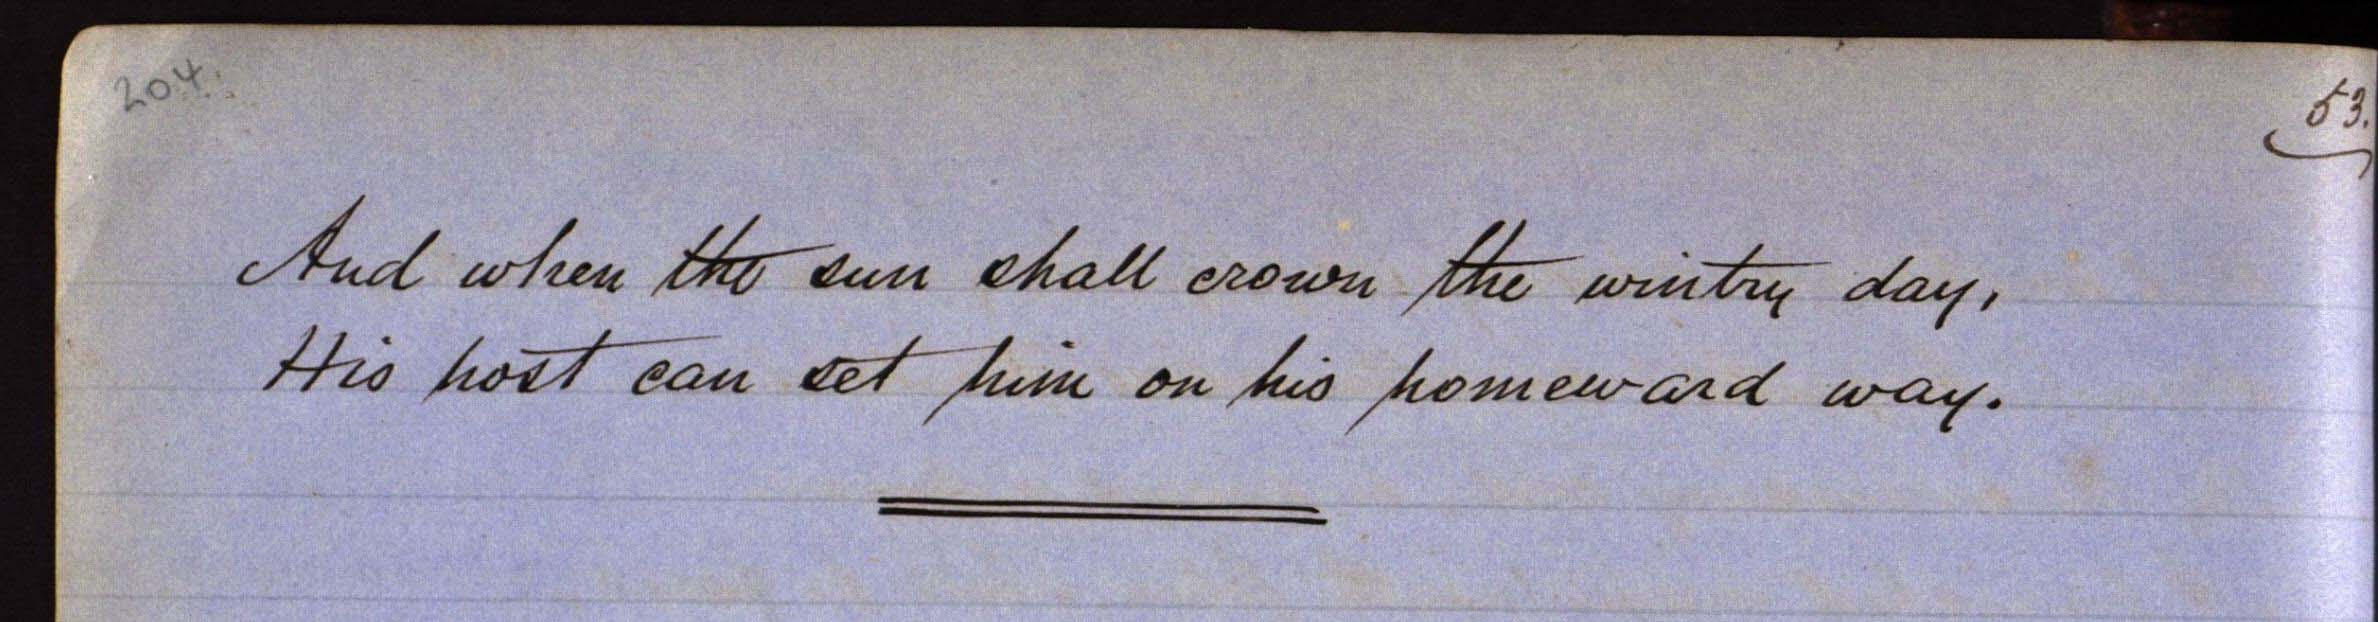 204.
53.
And when the sun shall crown the wintry day,
His host can set him on his homeward way.